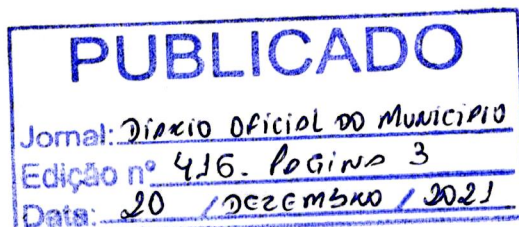 PUBLICADO
Jornal: Diário Oficial do Município
Edição nº 416. Pagina 3
Data: 20 / Dezembro / 2021